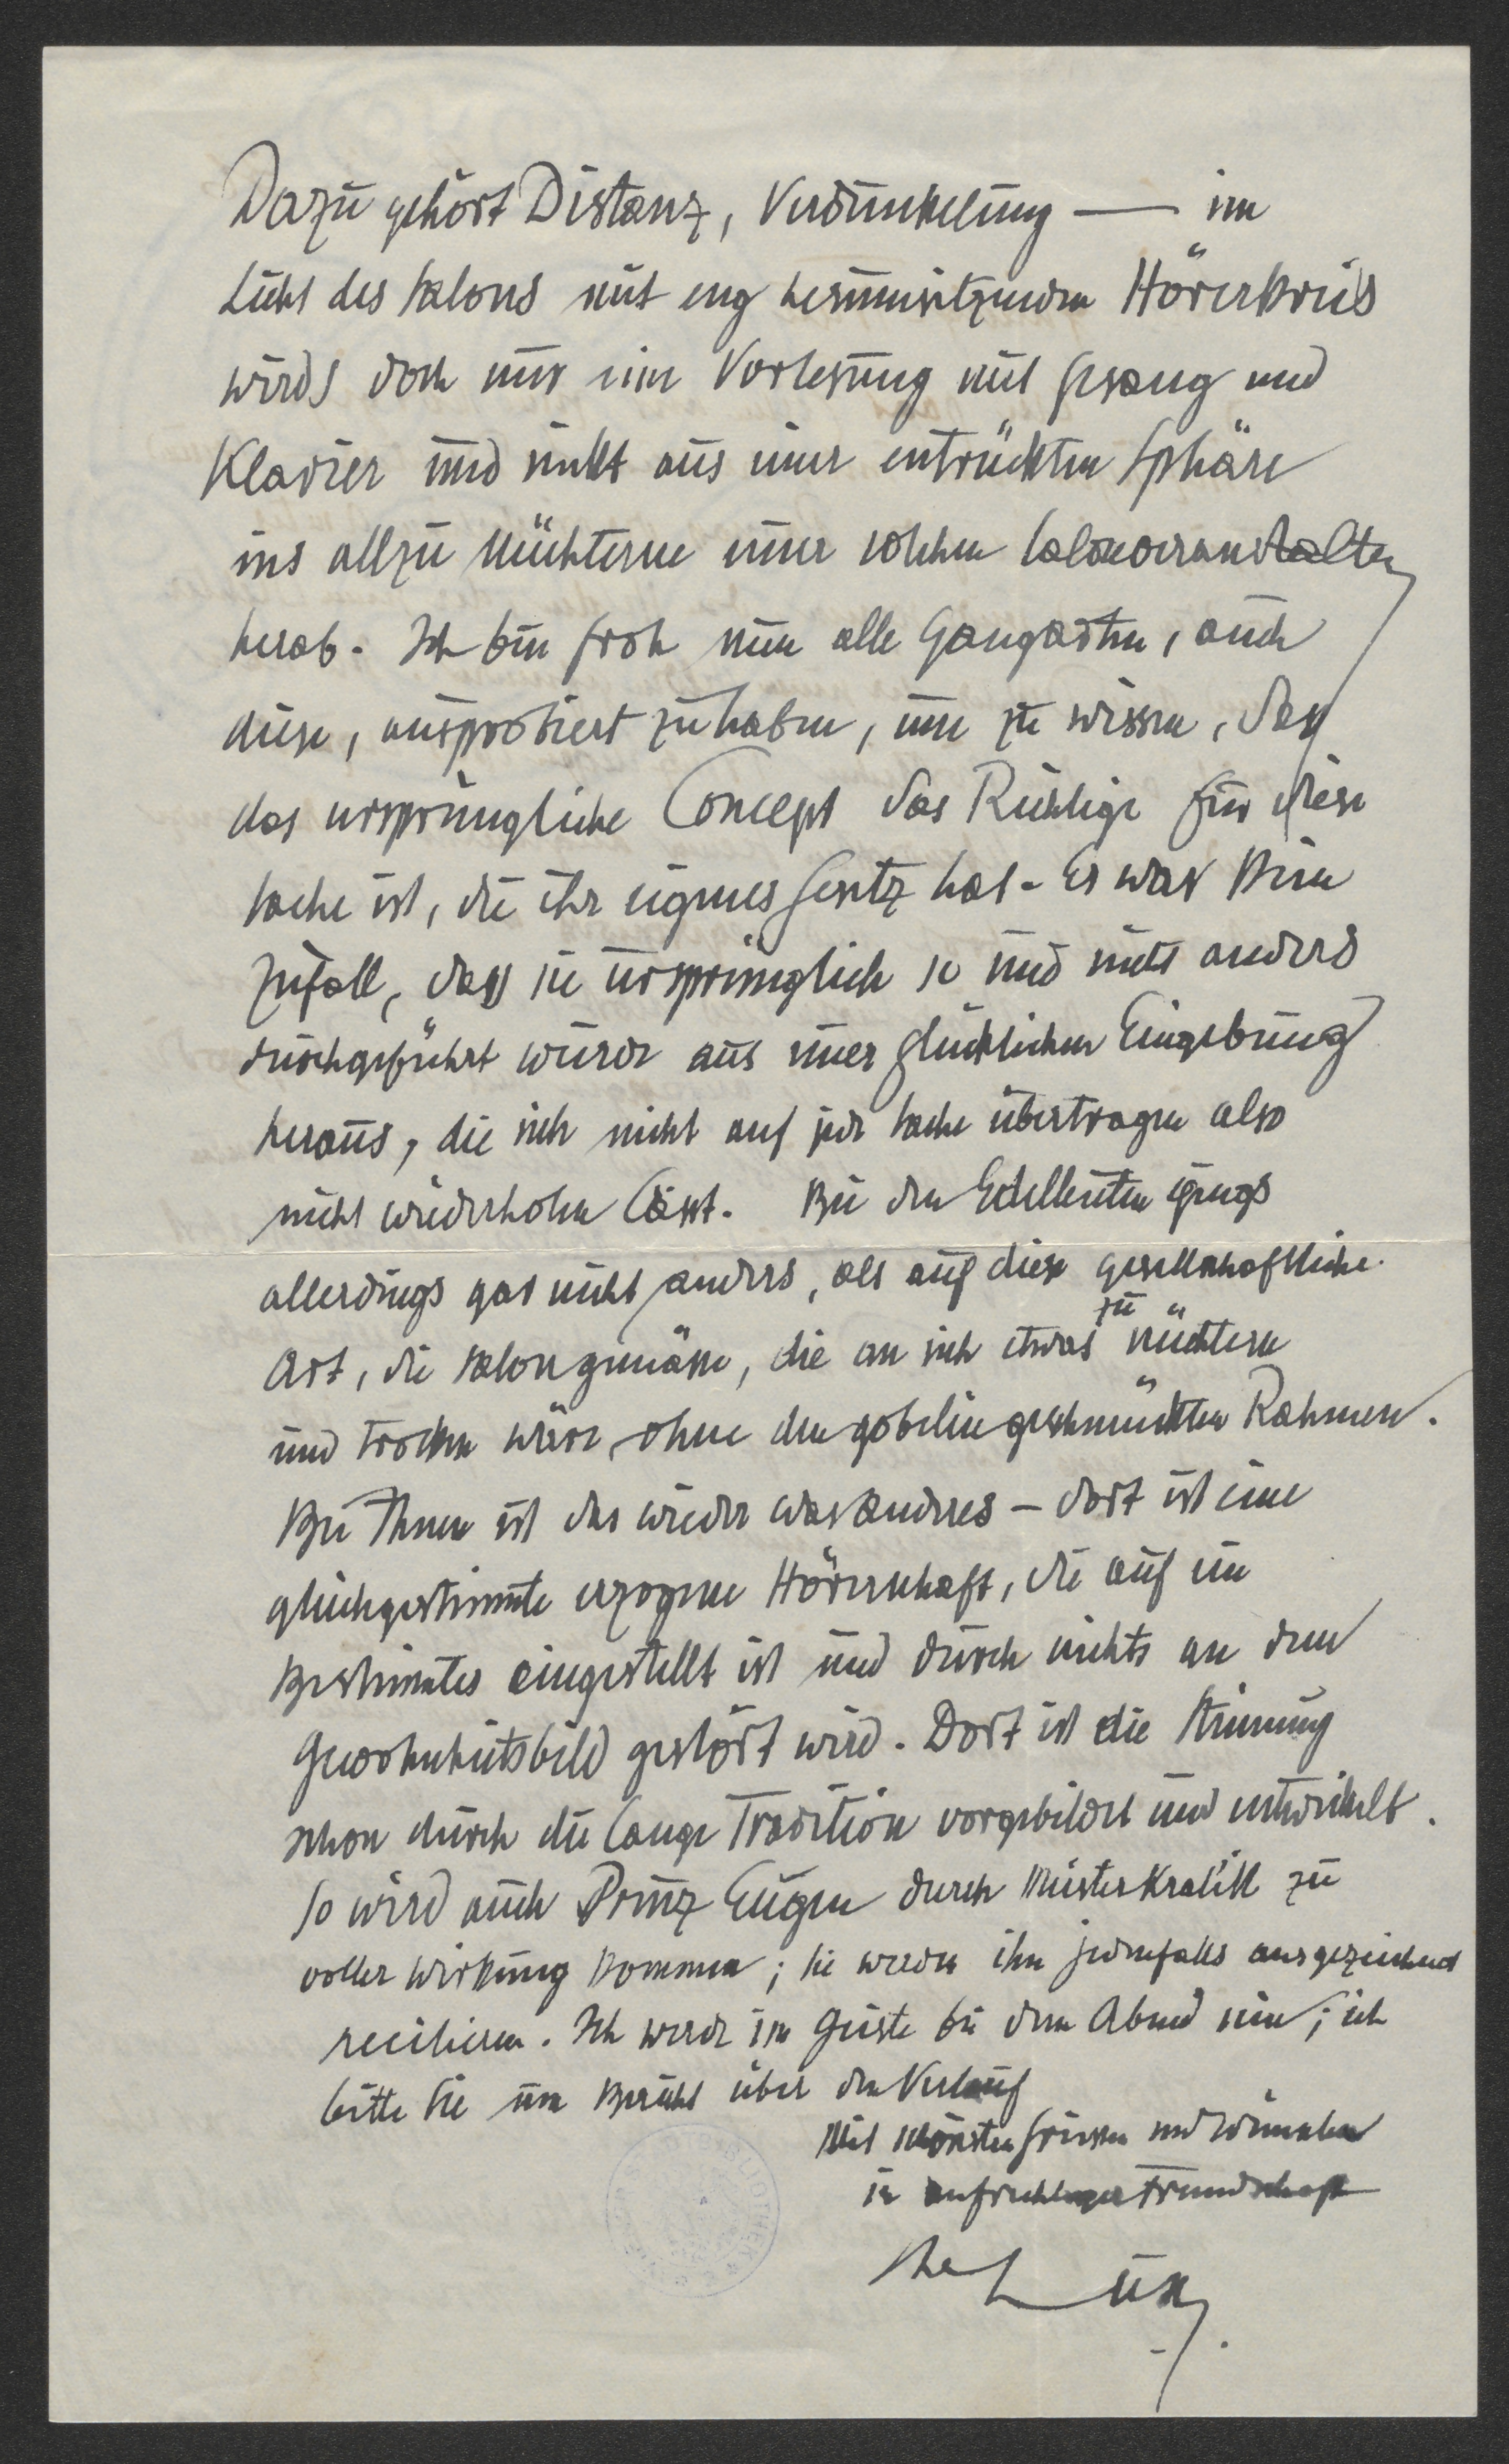 Dazu gehört Distanz, Verdunkelung — im
Licht des Salons mit eng herumsitzendem Hörerkreis
wirds doch nur eine Vorlesung mit Gesang und
Klavier und rückt aus einer entrückten Sphäre
ins allzu Nüchterne einer solchen
herab. Ich bin froh nun alle Gangarten, auch
diese, ausprobiert zu haben, um zu wissen, dass
das ursprüngliche Concept das Richtige für diese
Sache ist, die ihr eignes Gesetz hat. Es war kein
Zufall, dass sie ursprünglich so und nicht anders
durchgeführt wurde aus einer glücklichen Eingebung
heraus, die sich nicht auf jede Sache übertragen also
nicht wiederholen lässt. Bei den Edelleuten gings
allerdings gar nicht anders, als auf diese gesellschaftliche
Art, die salongemässe, die an sich etwas zu nüchtern
und trocken wäre, ohne den gobelingeschmückten Rahmen.
Bei Ihnen ist das wieder was anderes – dort ist eine
gleichgestimmte erzogene Hörerschaft, die auf ein
Bestimmtes eingestellt ist und durch nichts an dem
Gewohnheitsbild gestört wird. Dort ist die Stimmung
schon durch die lange Tradition vorgebildet und entwickelt.
So wird auch Prinz Eugen durch Meister Kralik zu
voller Wirkung kommen; Sie werden ihn jedenfalls ausgezeichnet
recitieren. Ich werde im Geiste bei dem Abend sein; ich
bitte Sie um Bericht über den Verlauf
Mit schönsten Grüssen und Wünschen
in aufrichtiger Freundschaft